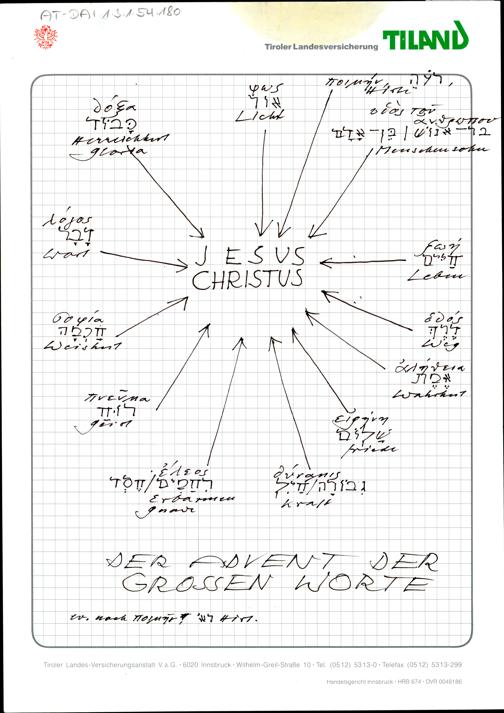 AT-DAI 1.3.1.54.180
Tiroler Landesversicherung TILAND
δόξα
כָּבוֹד
Herrlichkeit
Gloria
φως
אוֹר
Licht
ποιμήν, רֹעֶה,
Hirte
υἱὸς τοῦ
ἀνθρώπου
בר־אנוש / בן־אדם
Menschensohn
λόγος
דָּבָר
Wort
JESUS
CHRISTUS
ζωή
חַיִּים
Leben
σοφία
חָכְמָה
Weisheit
ὁδός
Weg
ἀλήθεια
אֱמֶת
Wahrheit
πνεῦμα
רוּחַ
Geist
εἰρήνη
שָׁלוֹם
Friede
ἔλεος
רַחֲמִים/חֶסֶד
Erbarmen
Gnade
δύναμις
גְּבוּרָה/חַיִל
Kraft
DER ADVENT DER
GROSSEN WORTE
ev. nach ποιμήν Hirt.
Tiroler Landes-Versicherungsanstalt V.a.G. · 6020 Innsbruck · Wilhelm-Greil-Straße 10 · Tel. (0512) 5313-0 · Telefax (0512) 5313-299
Handelsgericht Innsbruck · HRB 674 · DVR 0048186